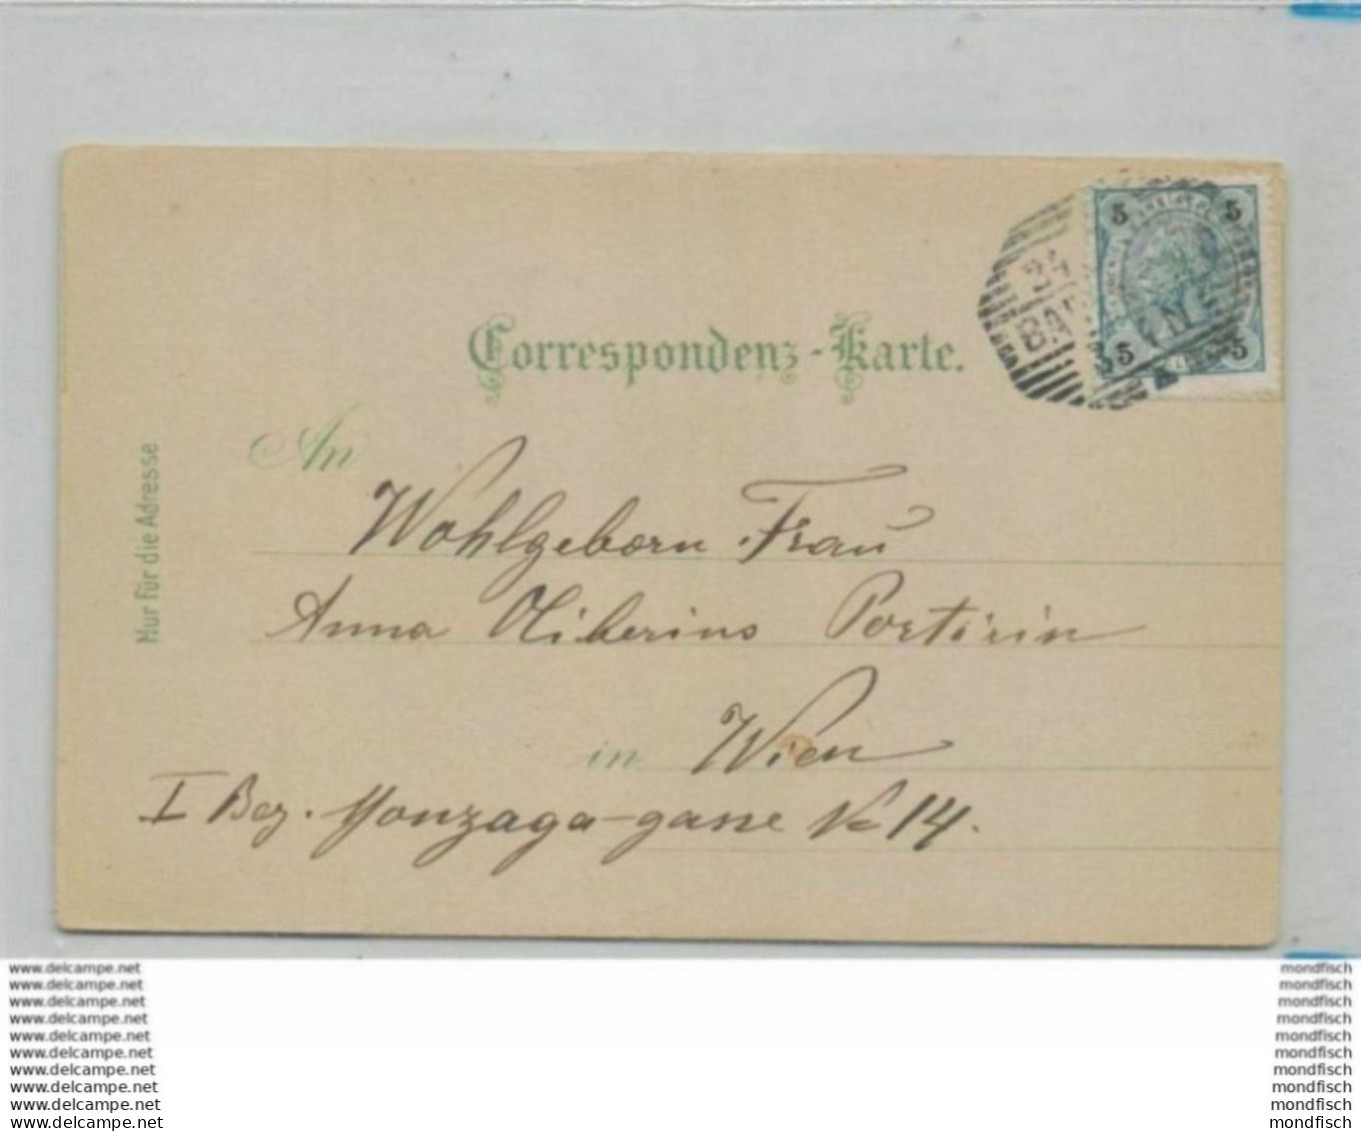 5 5
Correspondenz-Karte.
5 5
An
Wohlgeborn Frau
Nur für die Adresse
Anna Portirin
in Wien
I Bez. Gonzaga-gasse No 14.
www.delcampe.net mondfisch
www.delcampe.net mondfisch
www.delcampe.net mondfisch
www.delcampe.net mondfisch
www.delcampe.net mondfisch
www.delcampe.net mondfisch
www.delcampe.net mondfisch
www.delcampe.net mondfisch
www.delcampe.net mondfisch
www.delcampe.net mondfisch